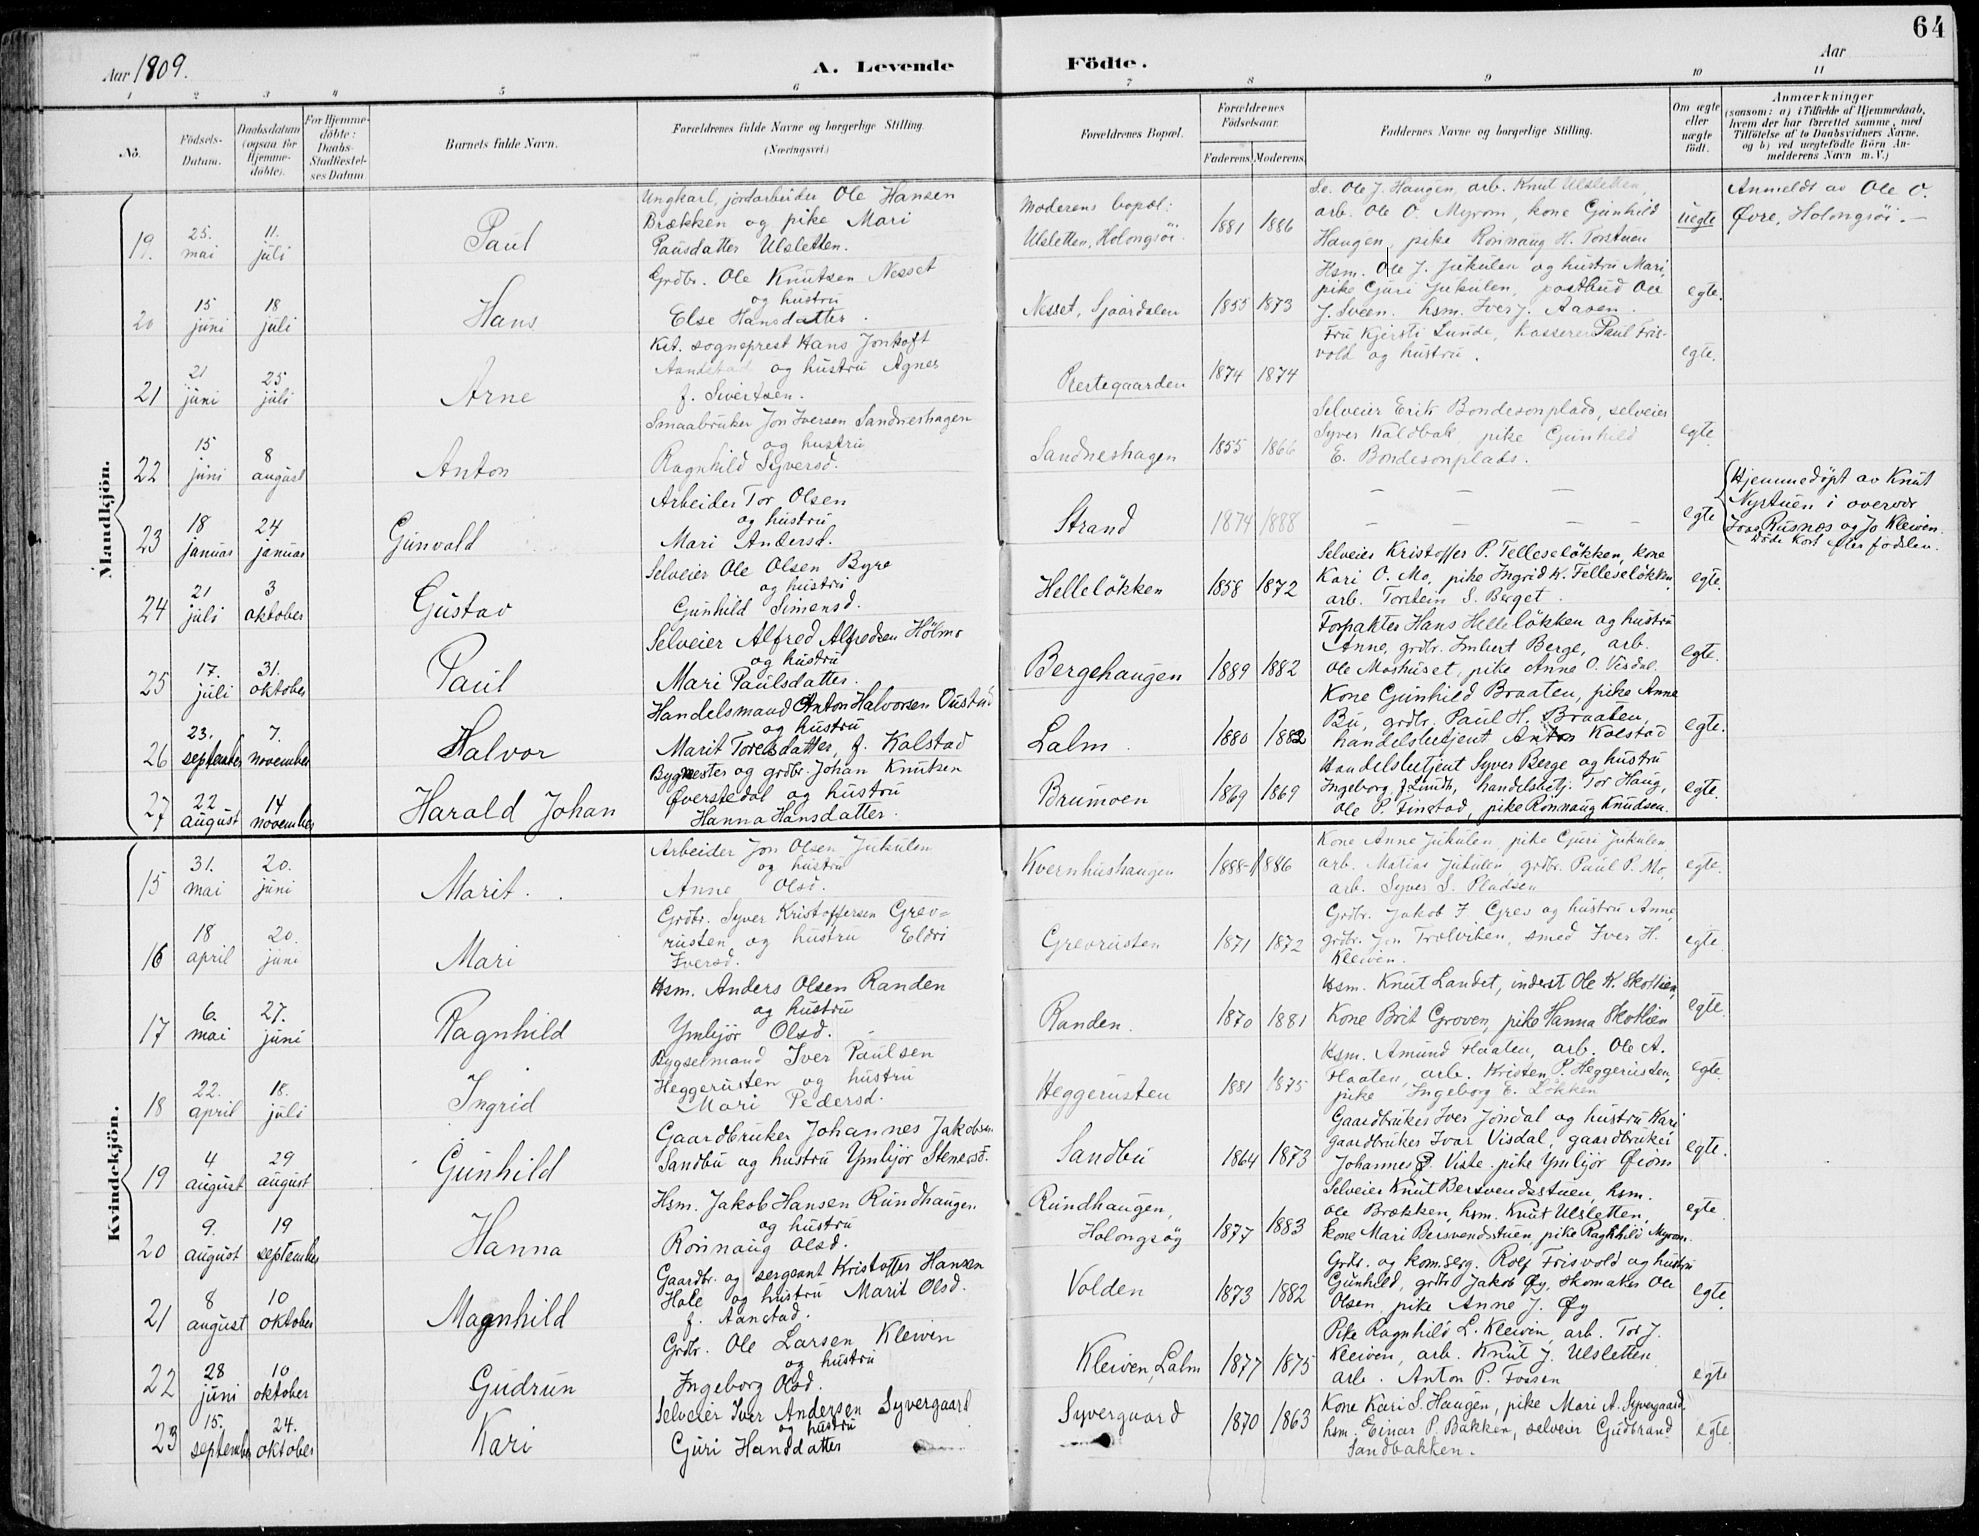 64
Aar 1909.
A. Levende Födte.
Aar
1 2 3 4 5 6 7 8 9 10 11
No.
Födsels-
Datum.
Daabsdatum
(ogsaa for
Hjemme-
döbte).
For Hjemme-
döbte:
Daabs-
Stadfæstel-
ses Datum
Barnets fulde Navn.
Forældrenes fulde Navne og borgerlige Stilling.
(Næringsvei.)
Forældrenes Bopæl.
Forældrenes
Födselsaar.
Faderens. Moderens.
Faddernes Navne og borgerlige Stilling.
Om ægte
eller
uægte
födt.
Anmærkninger
(saasom: a) i Tilfælde af Hjemmedaab,
hvem der har forrettet samme, med
Tilföielse af to Daabsvidners Navne.
og b) ved uægtefödte Börn An-
melderens Navn m.V.)
Mandkjön.
19. 25. mai 11. juli Paul
Ungkarl, jordarbeider Ole Hansen
Brækken og pike Mari
Paulsdatter Ulsletten.
Moderens bopæl:
Ulsletten, Holongsöi.
1881 1886
Se. Ole J. Haugen, arb. Knut Ulsletten,
arb. Ole O. Myrom, kone Gunhild
Haugen, pike Rönnaug H. Torstuen
uegte
Anmeldt av Ole O.
Øvre, Holongsöi.—
20 15 juni 18 juli Hans
Grdbr. Ole Knutsen Nesset
og hustru
Else Hansdatter.
Nesset, Sjaardalen 1855 1873
Hsm. Ole J. Jukulen og hustru Mari,
pike Guri Jukulen, postbud Ole
J. Sveen. hsm. Iver J. Aasen.
egte.
21 21 juni 25 juli Arne
Kst. sogneprest Hans Jonhoft
Aandstad og hustru Agnes
f. Sivertsen.
Prestegaarden 1874 1874
Fru Kjersti Lunde, kasserer Paul Fris-
vold og hustru.
egte.
22 15 juni 8 august Anton
Smaabruker Jon Iversen Sandneshagen
og hustru
Ragnhild Syversd.
Sandneshagen 1855 1866
Selveier Erik Bondesonplads, selveier
Syver Kaldbak, pike Gunhild
E. Bondesonplads.
egte.
23 18 januar 24 januar Gunvald
Arbeider Tor Olsen
og hustru
Mari Andersd.
Strand 1874 1888
— — —
— — — —
egte
Hjemmedöpt av Knut
Nystuen i overvær
Ivar Rusnes og Jo Kleiven.
Döde kort efter födslen.
24 21 juli 3 oktober Gustav
Selveier Ole Olsen Byre
og hustru
Gunhild Simensd.
Helleløkken 1858 1872
Selveier Kristoffer P. Telleseløkken, kone
Kari O. Mo, pike Ingrid K. Telleseløkken,
arb. Torstein S. Berget.
egte.
25 17. juli 31. oktober Paul
Selveier Alfred Alfredsen Hölmo
og hustru
Mari Paulsdatter.
Bergehaugen 1889 1882
Forpakter Hans Helleløkken og hustru
Anne, grdbr. Imbert Berge, arb.
Ole Moshuset, pike Anne O. Visdal.
egte.
26 23. september 7. november Halvor
Handelsmand Anton Halvorsen Oustad
og hustru
Marit Toresdatter, f. Kolstad
Lalm. 1880 1882
Kone Gunhild Braaten, pike Anne
Bu, grdbr. Paul H. Braaten,
handelsbetjent Anton Kolstad
egte.
27 22 august 14 november Harald Johan
Bygmester og grdbr. Johan Knutsen
Øverstedal og hustru
Hanna Hansdatter.
Brumoen 1869 1869
Handelsbetjent Syver Berge og hustru
Ingeborg f. Lunth, handelsbetj. Tor Haug,
Ole P. Finstad, pike Rönnaug Knudsen.
egte.
Kvindekjön.
15 31. mai 20. juni Marit.
Arbeider Jon Olsen Jukulen
og hustru
Anne Olsd.
Kvernhushaugen 1888 1886
Kone Anne Jukulen, pike Guri Jukulen,
arb. Matias Jukulen, grdbr. Paul P. Mo,
arb. Syver S. Pladsen
egte.
16 18 april 20. juni Mari
Grdbr. Syver Kristoffersen Grev=
rusten og hustru Eldri
Iversd.
Grevrusten 1871 1872
Grdbr. Jakob I. Grev og hustru Anne,
grdbr. Jon Trolviken, smed Iver H.
Kleiven.
egte.
17 6. mai 27. juni Ragnhild
Hsm. Anders Olsen Randen
og hustru
Ymbjør Olsd.
Randen. 1870 1881
Hsm. Knut Landet, inderst Ole K. Skotlien,
Kone Brit Groven, pike Hanna Skotlien
egte.
18 22. april 18. juli Ingrid
Bygselmand Iver Paulsen
Heggerusten og hustru
Mari Pedersd.
Heggerusten 1881 1875
Hsm. Amund Flaaten, arb. Ole A.
Flaaten, arb. Kristen P. Heggerusten,
pike Ingeborg E. Løkken
egte.
19 4 august 29 august Gunhild
Gaardbruker Johannes Jakobsen
Sandbu og hustru Ymbjør Stenersd.
Sandbu 1864 1873
Gaardbruker Iver Jondal og hustru Kari
gaardbruker Ivar Visdal, gaardbruker
Johannes P. Viste, pike Ymbjør Øiom
egte.
20 9. august 19 september Hanna
Hsm. Jakob Hansen Rundhaugen
og hustru
Rönnaug Olsd.
Rundhaugen,
Holongsøy
1877 1883
Selveier Knut Bersvendsstuen, hsm.
Ole Brækken, hsm. Knut Ulsletten,
kone Mari Bersvendstuen, pike Ragnhild Myrom.
egte.
21 8 august 10 oktober Magnhild
Gaardbr. og sergeant Kristoffer Hansen
Hole og hustru Marit Olsd.
f. Aanstad.
Volden 1873 1882
Grdbr. og kom.serg. Rolf Frisvold og hustru
Gunhild, grdbr. Jakob Øy, skomaker Ole
Olsen, pike Anne J. Øy
egte.
22 28 juni 10 oktober Gudrun
Grdbr. Ole Larsen Kleiven
og hustru
Ingeborg Olsd.
Kleiven, Lalm 1877 1875
Pike Ragnhild L. Kleiven, arb. Tor J.
Kleiven, arb. Knut J. Ulsletten
arb. Anton P. Fossen
egte
23 15. september 24. oktober Kari
Selveier Iver Andersen Syvergaard
og hustru
Guri Hansdatter
Syvergaard 1870 1863
Kone Kari S. Haugen, pike Mari A. Syvergaard,
hsm. Einar P. Bakken, selveier Gudbrand
Sandbakken.
egte.